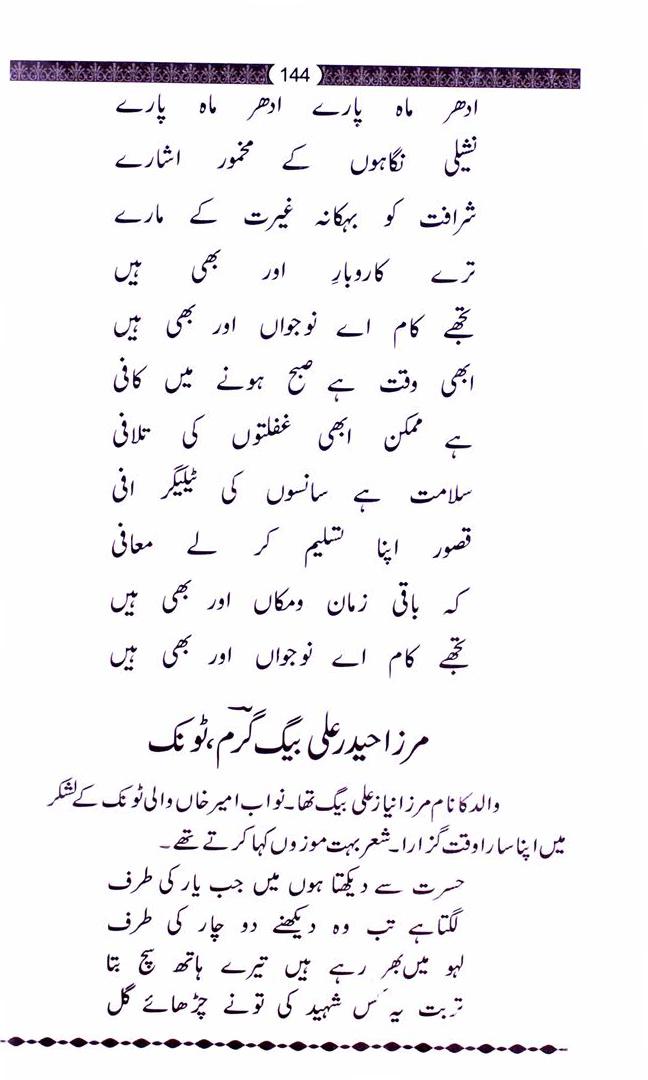 144
ادھر ماہ پارے ادھر ماہ پارے
نشیلی نگاہوں کے مخمور اشارے
شرافت کو بہکانہ غیرت کے مارے
ترے کاروبارِ اور بھی ہیں
تجھے کام اے نوجواں اور بھی ہیں
ابھی وقت ہے صبح ہونے میں کافی
ہے ممکن ابھی غفلتوں کی تلافی
سلامت ہے سانسوں کی ٹیلیگر افی
قصور اپنا تسلیم کر لے معافی
کہ باقی زمان ومکاں اور بھی ہیں
تجھے کام اے نوجواں اور بھی ہیں
مرزا حیدر علی بیگ گرم، ٹونک
والد کا نام مرزا نیاز علی بیگ تھا۔ نواب امیر خاں والی ٹونک کے لشکر
میں اپنا سارا وقت گزارا۔ شعر بہت موزوں کہا کرتے تھے۔
حسرت سے دیکھتا ہوں میں جب یار کی طرف
لگتا ہے تب وہ دیکھنے دو چار کی طرف
لہو میں بھر رہے ہیں تیرے ہاتھ سچ بتا
تربت یہ کس شہید کی تونے چڑھائے گل